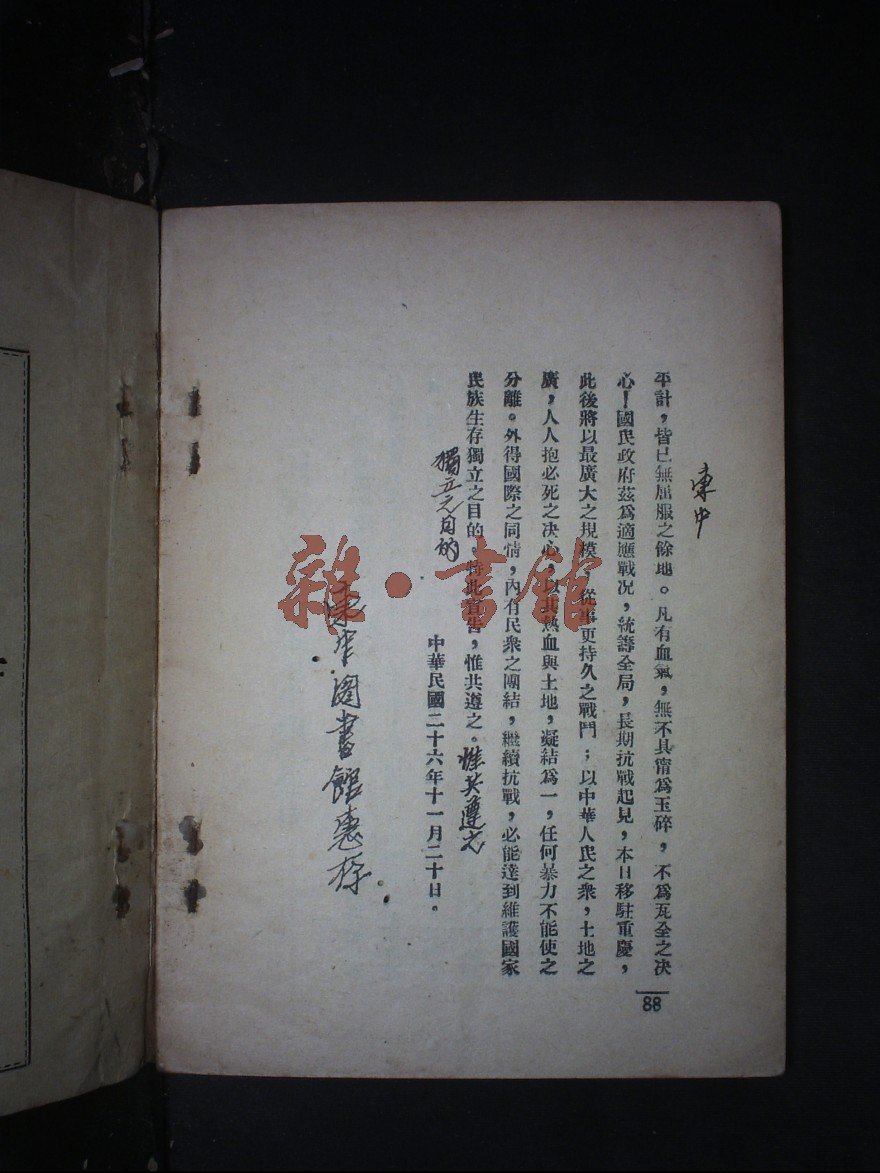 東中
平計，皆已無屈服之餘地。凡有血氣，無不具甯為玉碎，不為瓦全之決
心！國民政府茲為適應戰况，統籌全局，長期抗戰起見，本日移駐重慶，
此後將以最廣大之規模，從事更持久之戰鬥；以中華人民之衆，土地之
廣，人人抱必死之決心，以其熱血與土地，凝結為一，任何暴力不能使之
分離。外得國際之同情，內有民衆之團結，繼續抗戰，必能達到維護國家
民族生存獨立之目的。特此宣告，惟共遵之。
惟共遵之
獨立之目的
中華民國二十六年十一月二十日。
東中圖書館惠存
88
雜·書館